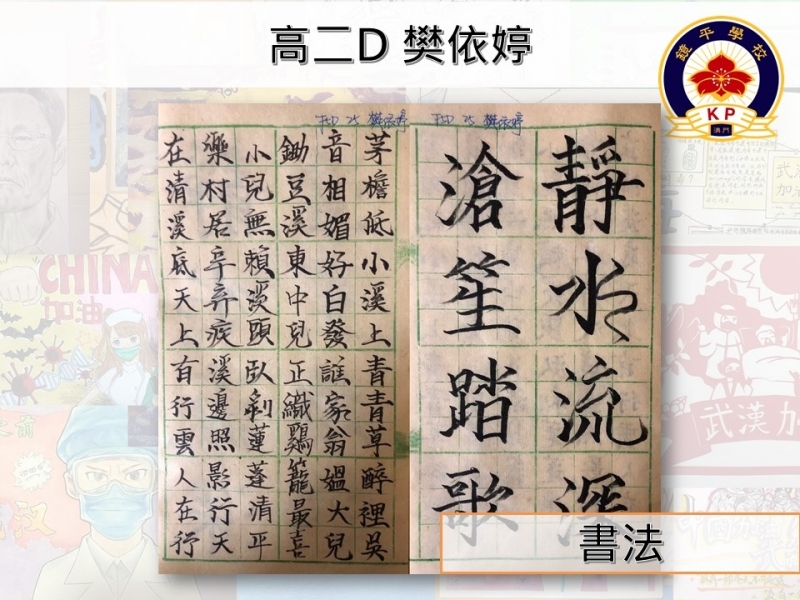 高二D 樊依婷
鏡平學校
KP
澳門
F5D 25 樊依婷
F5D 25 樊依婷
靜水流深
滄笙踏歌
茅檐低小溪上青青草醉裡吳
音相媚好白發誰家翁媼大兒
鋤豆溪東中兒正織鷄籠最喜
小兒無賴溪頭臥剝蓮蓬清平
樂村居辛弃疾溪邊照影行天
在清溪底天上有行雲人在行
書法
CHINA
加油
武漢加